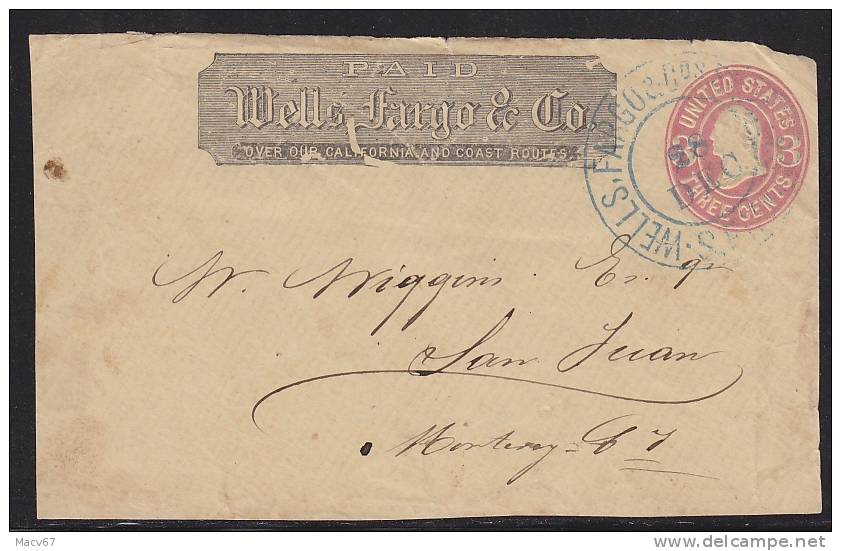 PAID
Wells, Fargo & Co.
OVER OUR CALIFORNIA AND COAST ROUTES
UNITED STATES
3 3
THREE CENTS
WELLS, FARGO & Co's
28
DEC
W. Wiggins Esqr
San Juan
Monterey Cy
Macv67
delcampe.net